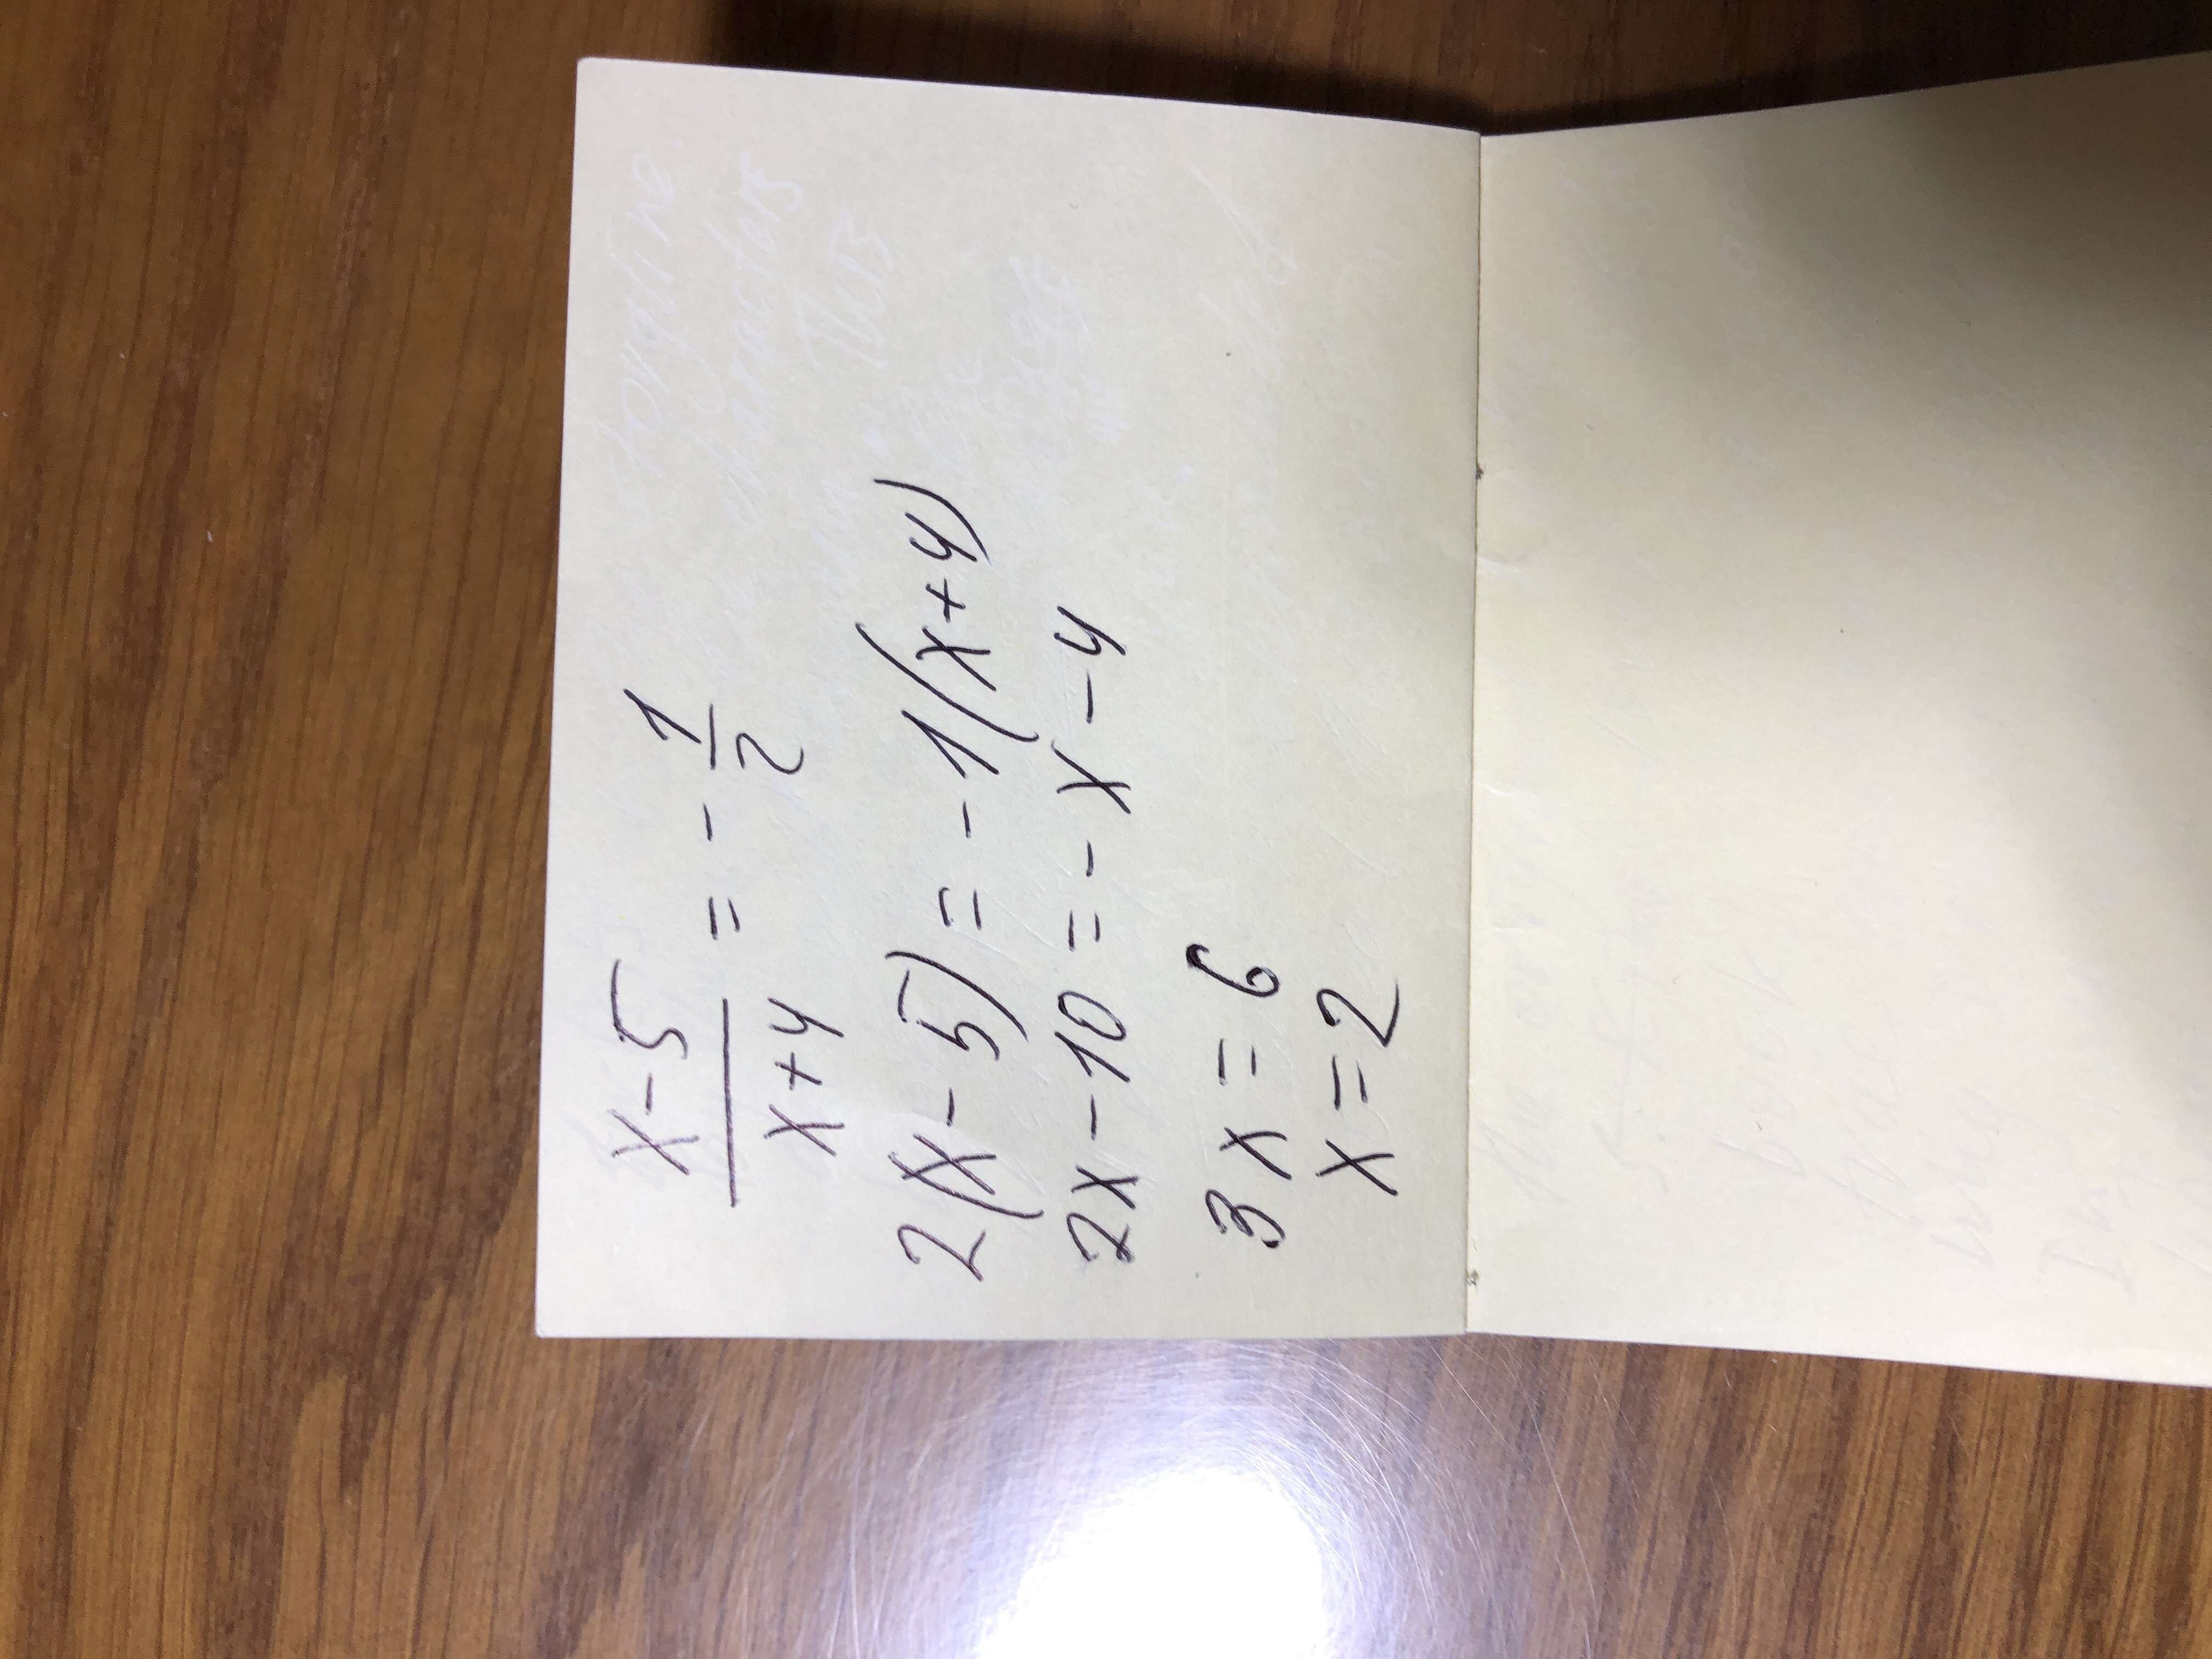 x-5/x+4 = -1/2
2(x-5) = -1(x+4)
2x-10 = -x-4
3x = 6
x = 2